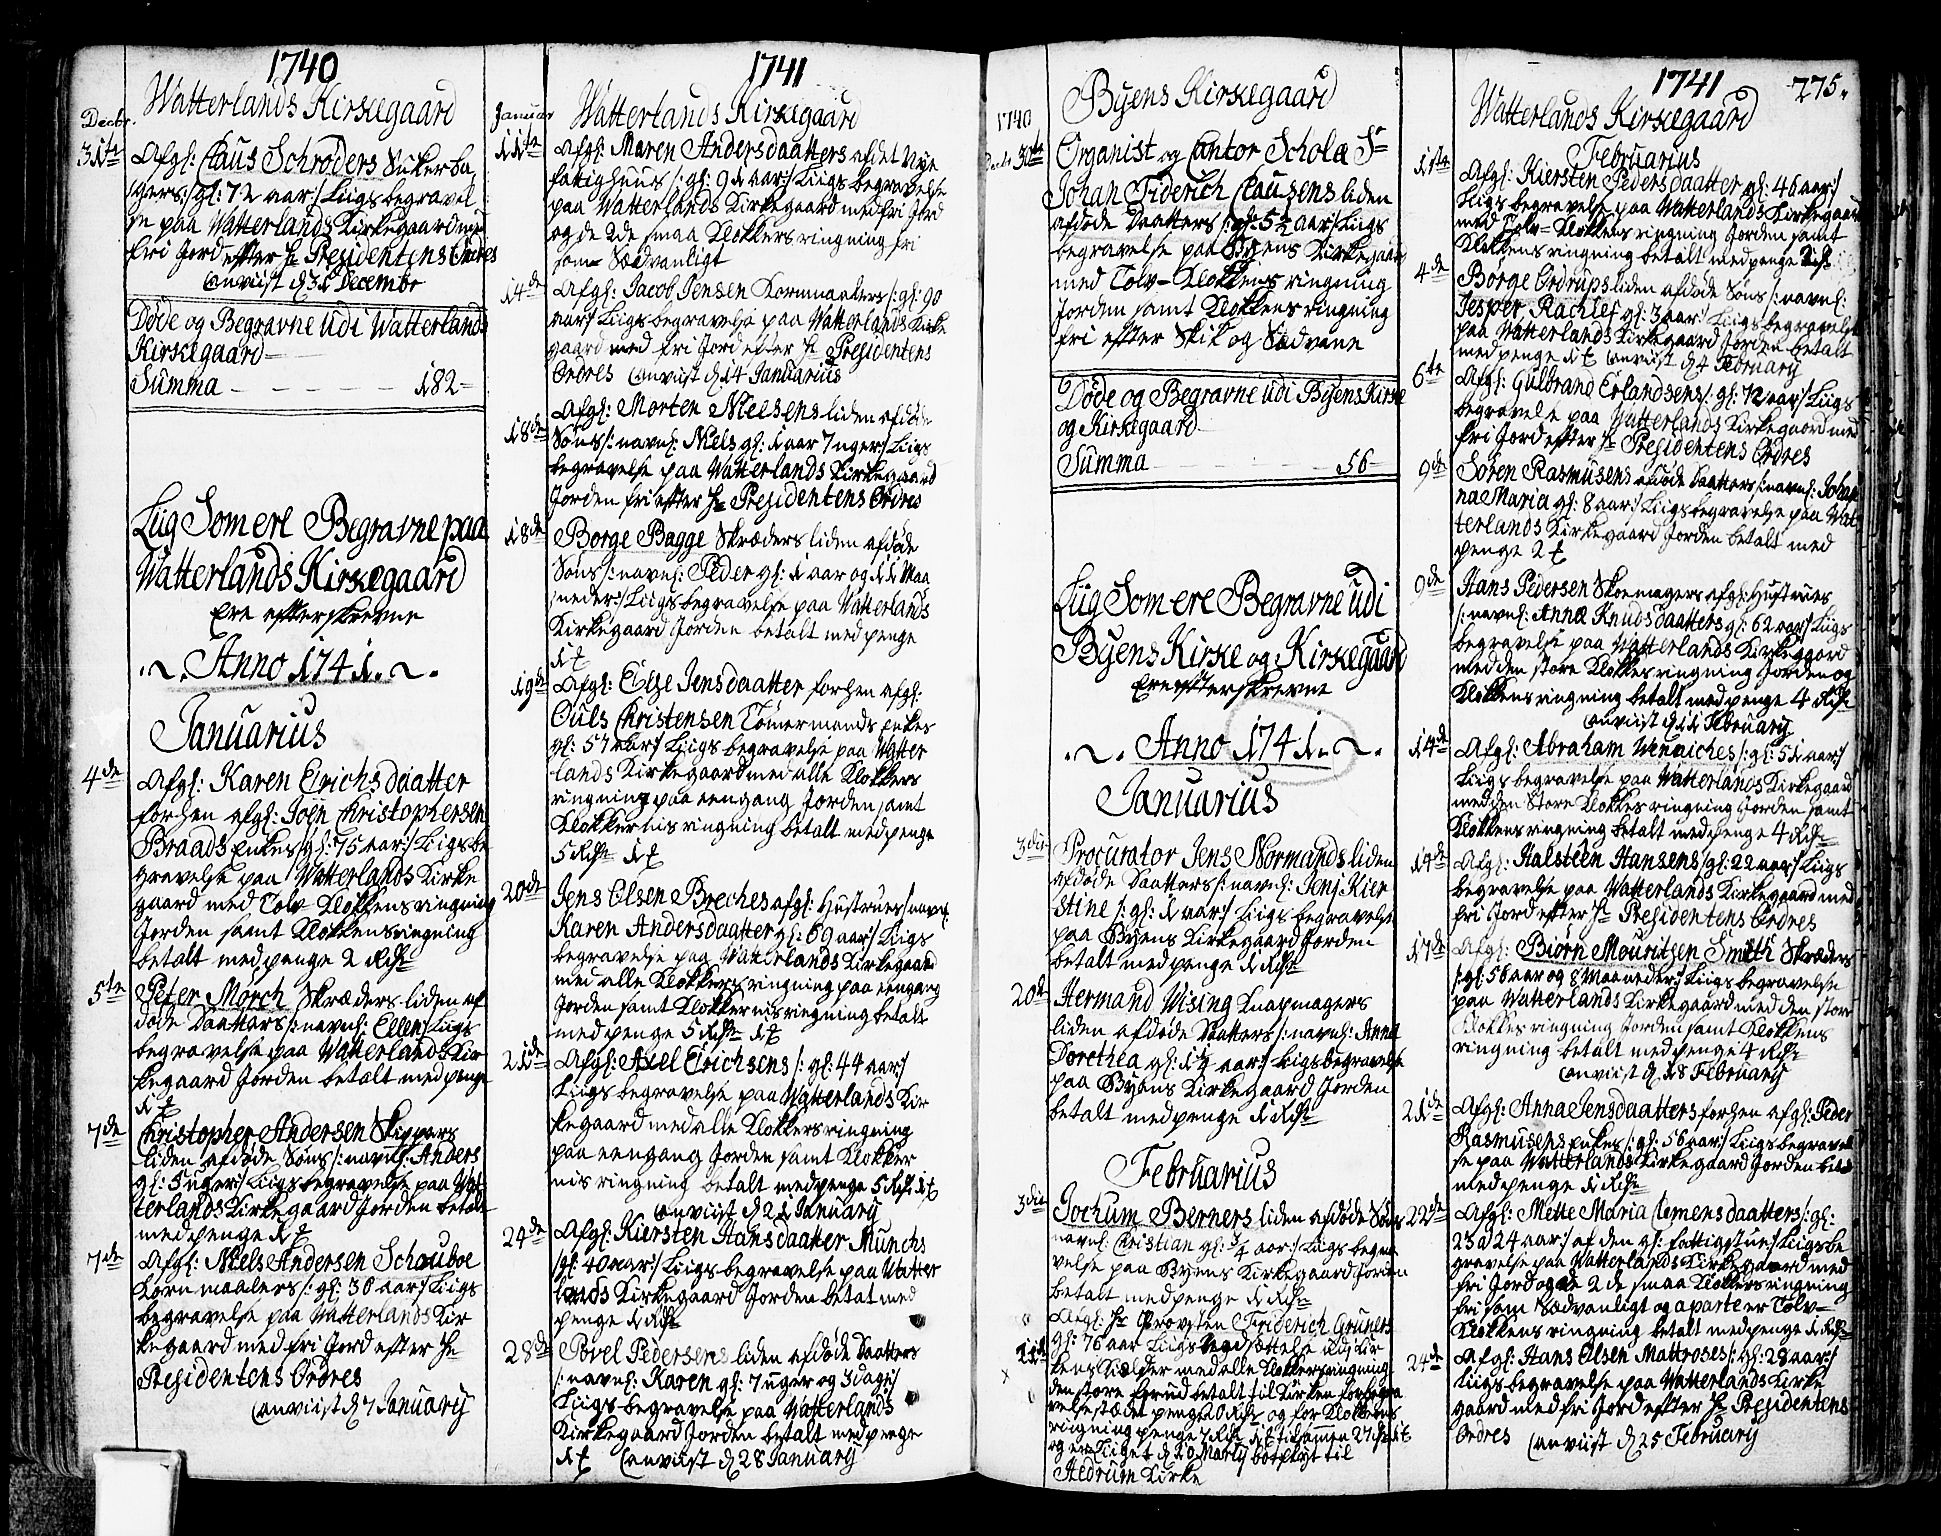 1740
Watterlands Kirkegaard
Decbr.
31te Afgl: Claus Schrøders Sukerba
gers /:gl: 72 aar:/ Liigs begravel
se paa Watterlands Kirkegaard med
fri Jord efter Hr Presidentens Ordres
Anviist d 31 Decembr
Døde og Begravne udi Watterlands
Kirkegaard
Summa 182
Liig Som ere Begravne paa
Watterlands Kirkegaard
Ere efterskrevne
Anno 1741.
Januarius
4de Afgl: Karen Erichsdaatter
forhen afgl: Joen Christophersen
Braads Enkes /gl: 75 aar:/ Liigs be
gravelse paa Watterlands Kirke
gaard med Tolv Klokkens ringning
Jorden samt Klokkens ringning
betalt med penge 2 Rdr
5te Peter Mørch Skræders liden af
døde Daatters /:navnl: Ellen:/ Liigs
begravelse paa Watterlands Kir
kegaard Jorden betalt med penge
1
7de Christopher Andersen Skippers
liden afdøde Søns /:navnl: Anders
gl: 5 uger:/ Liigs begravelse paa Wat
terlands Kirkegaard Jorden betalt
med penge 1
7de Afgl: Niels Andersen Schouboe
Kornmaalers /:gl: 30 aar:/ Liigs
begravelse paa Watterlands Kir
kegaard med fri Jord efter Hr
Presidentens Ordres
Anviist d 7 January
1741
Januar Watterlands Kirkegaard
11te Afgl: Maren Andersdaatters af det Nye
fatighuus /:gl: 91 aar:/ Liigs begravelse
paa Watterlands Kirkegaard med fri Jord
og de 2de smaa Klokkers ringning fri
som Sædvanligt
14de Afgl: Jacob Jensen Kornmaalers /:gl: 90
aar:/ Liigs begravelse paa Watterlands Kirke
gaard med fri Jord efter Hr Presidentens
Ordres Anviist d 14 Januarius
18de Afgl: Morten Nielsens liden afdøde
Søns /:navnl: Niels gl: 1 aar 7 uger:/ Liigs
begravelse paa Watterlands Kirkegaard
Jorden fri efter Hr Presidentens Ordres
18de Borge Bagge Skræders liden afdøde
Søns /:navnl: Peder gl: 1 aar og 11 Maa
neder:/ Liigs begravelse paa Watterlands
Kirkegaard Jorden betalt med penge
1
19de Afgl: Else Jensdaatter forhen afgl:
Ouls Christensen Tømermands Enkes
gl: 57 aar:/ Liigs begravelse paa Watter
lands Kirkegaard med alle Klokkers
ringning paa eengang Jorden samt
Klokkernis ringning betalt med penge
5 Rdr 1
20de Jens Olsen Breches afgl: Hustrues /navnl:
Karen Andersdaatter gl: 69 aar:/ Liigs
begravelse paa Watterlands Kirkegaard
med alle Klokkers ringning paa eengang
Jorden samt Klokkernis ringning betalt
med penge 5 Rdr 1
21de Afgl: Axel Erichsens /:gl: 44 aar:/
Liigs begravelse paa Watterlands Kir
kegaard med alle Klokkers ringning
paa eengang Jorden samt Klokker
nis ringning betalt med penge 5 Rdr 1
Anviist d 21 January
24de Afgl: Kiersten Hansdaatter Munchs
/gl: 40 aar:/ Liigs begravelse paa Watter
lands Kirkegaard Jorden betat med
penge 1 Rdr
28de Povel Pedersens liden afdøde Daatters
/:navnl: Karen gl: 7 uger og 3 dage:/
Liigs begravelse paa Watterlands
Kirkegaard Jorden betalt med penge
1 Anviist d 28 January
Byens Kirkegaard
1740
Decbr 30te Organist og Cantor Scholæ Sr
Johan Tiderich Clausens liden
afdøde Daatters /:gl: 5½ aar:/ Liigs
begravelse paa Byens Kirkegaard
med Tolv-Klokkens ringning
Jorden samt Klokkens ringning
fri efter Skik og Sædvane
Døde og Begravne udi Byens Kirke
og Kirkegaard
Summa 56
Liig Som ere Begravne udi
Byens Kirke og Kirkegaard
Ere efterskrevne
Anno 1741.
Januarius
3die Procurator Jens Normands liden
afdøde Daatters /:navnl: Jens Kier
stine /:gl: 1 aar:/ Liigs begravelse
paa Byens Kirkegaard Jorden
betalt med penge 1 Rdr
20de Hermand Wising Knapmagers
liden afdøde Daatters /:navnl: Anna
Dorethea gl: 1¼ aar:/ Liigs begravelse
paa Byens Kirkegaard Jorden
betalt med penge 1 Rdr
Februarius
3die Jochum Berners liden afdøde Søns
navnl: Christian gl: ¾ aar:/ Liigs begra
velse paa Byens Kirkegaard Jorden
betalt med penge 1 Rdr
11de Afgl: Hr Provsten Friderich Gruners
gl: 76 aar Liigs begravelse udi Kir
kens Kielder med alle Klokkers ringning
den store betalt til Kirken for begra
velse stædet penge 20 Rdr og for Klokkens
ringning penge 7 Rdr 1 tilsamen 27 Rdr 1
og er Liiget d 20 Marty bortflyt til
Hedrum Kirke
1741 275.
Watterlands Kirkegaard
Februarius
1ste Afgl: Kiersten Pedersdaatter gl: 46 aar:/
Liigs begravelse paa Watterlands Kirkegaard
med Tolv-Klokkens ringning Jorden samt
Klokkens ringning betalt med penge 2 Rdr
4de Borge Ordrups liden afdøde Søns /:navnl:
Jesper Rachlef gl: 3 aar:/ Liigs begravelse
paa Watterlands Kirkegaard Jorden betalt
med penge 1 Anviist d 4 February
6te Afgl: Gulbrand Erlandsens /:gl: 72 aar:/ Liigs
begravelse paa Watterlands Kirkegaard med
fri Jord efter Hr Presidentens Ordres
9de Søren Rasmusens afdøde Daatters /:navnl: Johan
na Maria gl: 8 aar:/ Liigs begravelse paa Wat
terlands Kirkegaard Jorden betalt med
penge 2
9de Hans Pedersen Skoemagers afgl: Hustrues
/:navnl: Anna Knudsdaatters gl: 62 aar:/ Liigs
begravelse paa Watterlands Kirkegaard
med den store Klokkes ringning Jorden og
Klokkens ringning betalt med penge 4 Rdr
Anviist d 11 February
14de Afgl: Abraham Winniches /:gl: 51 aar:/
Liigs begravelse paa Watterlands Kirkegaard
med den Store Klokkes ringning Jorden samt
Klokkens ringning betalt med penge 4 Rdr
14de Afgl: Halsteen Hansens /gl: 22 aar:/ Liigs
begravelse paa Watterlands Kirkegaard med
fri Jord efter Hr Presidentens Ordres
17de Afgl: Biørn Mouritsen Smith Skræders
/:gl: 56 aar og 8 Maaneder:/ Liigs begravelse
paa Watterlands Kirkegaard med den store
Klokkes ringning Jorden samt Klokkens
ringning betalt med penge 4 Rdr
Anviist d 18 February
21de Afgl: Anna Jensdaatters forhen afgl: Peder
Rasmusens Enkes /:gl: 56 aar:/ Liigs begravel
se paa Watterlands Kirkegaard Jorden betalt
med penge 1 Rdr
22de Afgl: Mette Maria Clemensdaatters /:gl:
23 a 24 aar:/ af den gl: fattigstue:/ Liigs be
gravelse paa Watterlands Kirkegaard med
fri Jord og de 2de smaa Klokkers ringning
fri som Sædvanligt og aparte er Tolv-
Klokkens ringning betalt med penge 1 Rdr
24de Afgl: Hans Olsen Mattroses /:gl: 28 aar:/
Liigs begravelse paa Watterlands Kirke
gaard med fri Jord efter Hr Presidentens
Ordres Anviist d 25 February